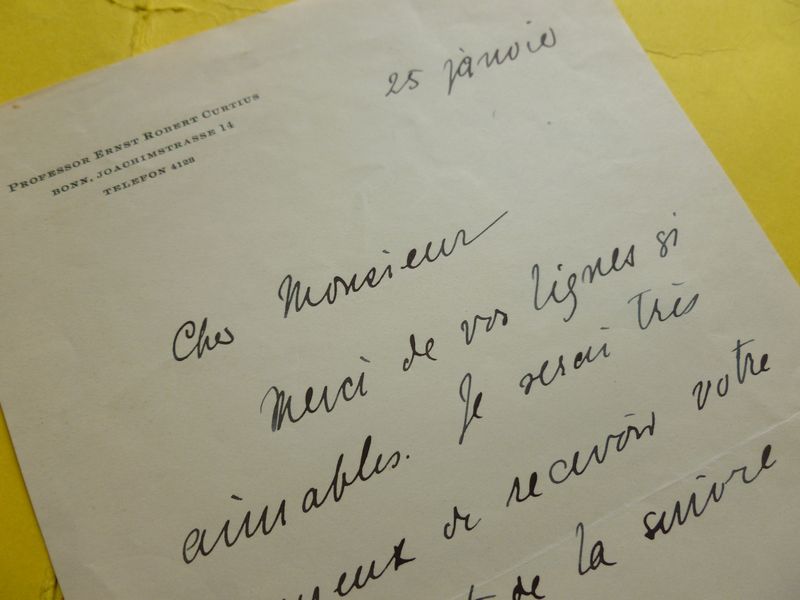 PROFESSOR ERNST ROBERT CURTIUS
BONN, JOACHIMSTRASSE 14
TELEFON 4128
25 janvier
Cher Monsieur
Merci de vos lignes si
aimables. Je serai très
de recevoir votre
de la suivre